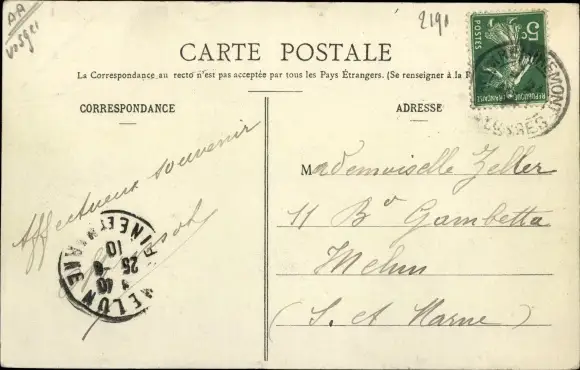 AA
Vosges
2190
CARTE POSTALE
La Correspondance au recto n'est pas acceptée par tous les Pays Étrangers. (Se renseigner à la
CORRESPONDANCE
ADRESSE
5c
POSTES
REPUBLIQUE FRANÇAISE
VOSGES
Affectueux souvenir
MELUN SEINE ET MARNE
10
25
Mademoiselle Zeller
11 Bd Gambetta
Melun
(S. et Marne)